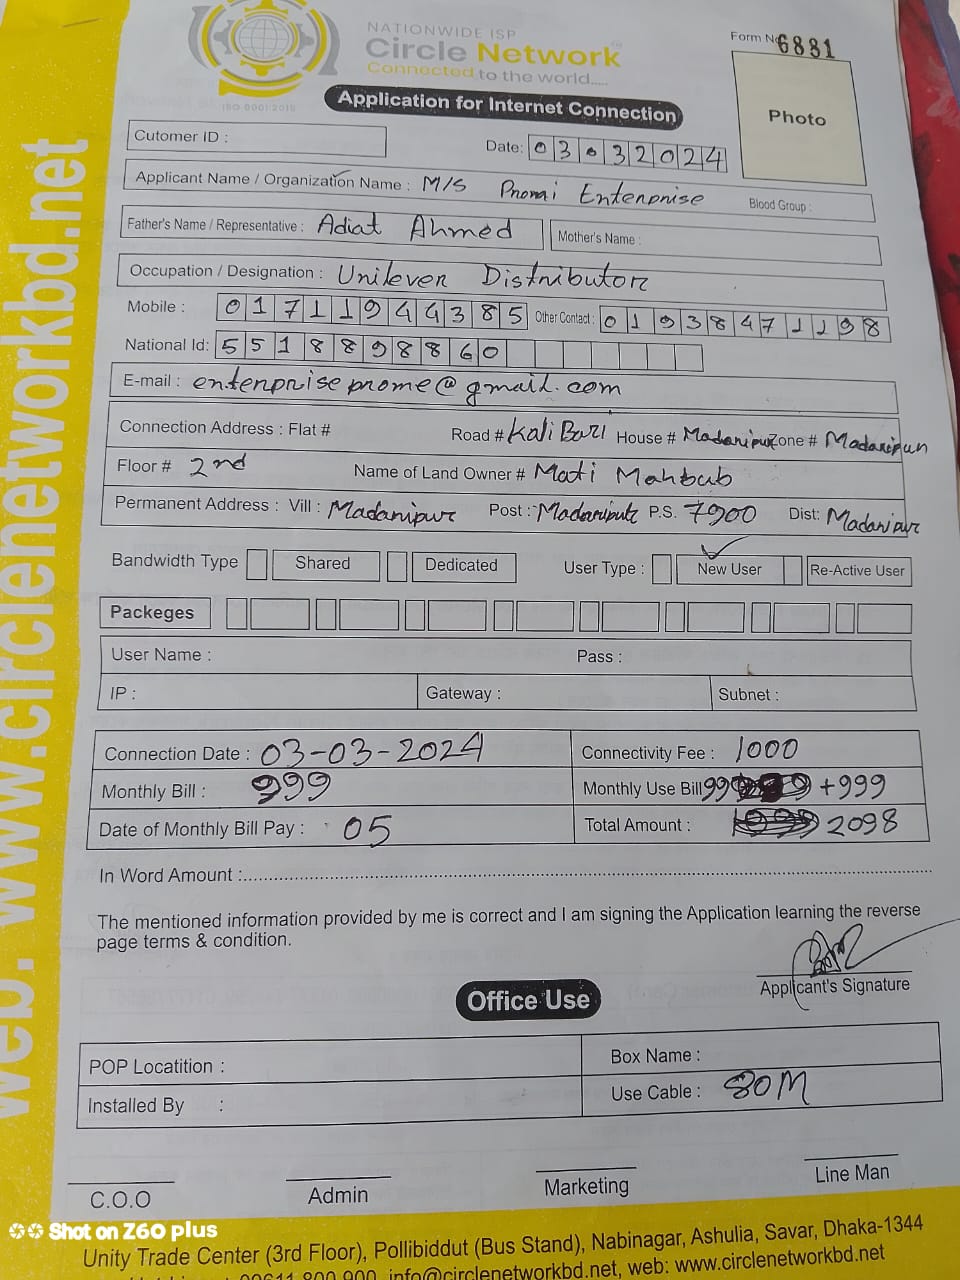 NATIONWIDE ISP
Circle Network
Connected to the world.....
ISO 9001:2015
Form No 6881
Application for Internet Connection
Photo
Cutomer ID :
Date: 03032024
Applicant Name / Organization Name : M/S Promi Enterprise Blood Group :
Father's Name / Representative : Adiat Ahmed Mother's Name :
Occupation / Designation : Unilever Distributor
Mobile : 01711944385 Other Contact : 01938471198
National Id: 5518898860
E-mail : enterpriseprome@gmail.com
Connection Address : Flat # Road # Kali Bari House # Madaripur Zone # Madaripur
Floor # 2nd Name of Land Owner # Moti Mahbub
Permanent Address : Vill : Madaripur Post : Madaripur P.S. 7900 Dist: Madaripur
Bandwidth Type Shared Dedicated User Type : New User Re-Active User
Packeges
User Name : Pass :
IP : Gateway : Subnet :
Connection Date : 03-03-2024 Connectivity Fee : 1000
Monthly Bill : 999 Monthly Use Bill 99 +999
Date of Monthly Bill Pay : 05 Total Amount : 2098
In Word Amount :
The mentioned information provided by me is correct and I am signing the Application learning the reverse
page terms & condition.
Applicant's Signature
Office Use
POP Locatition : Box Name :
Installed By : Use Cable : 80M
C.O.O Admin Marketing Line Man
Shot on Z60 plus
Unity Trade Center (3rd Floor), Pollibiddut (Bus Stand), Nabinagar, Ashulia, Savar, Dhaka-1344
09611 800 900, info@circlenetworkbd.net, web: www.circlenetworkbd.net
web: www.circlenetworkbd.net